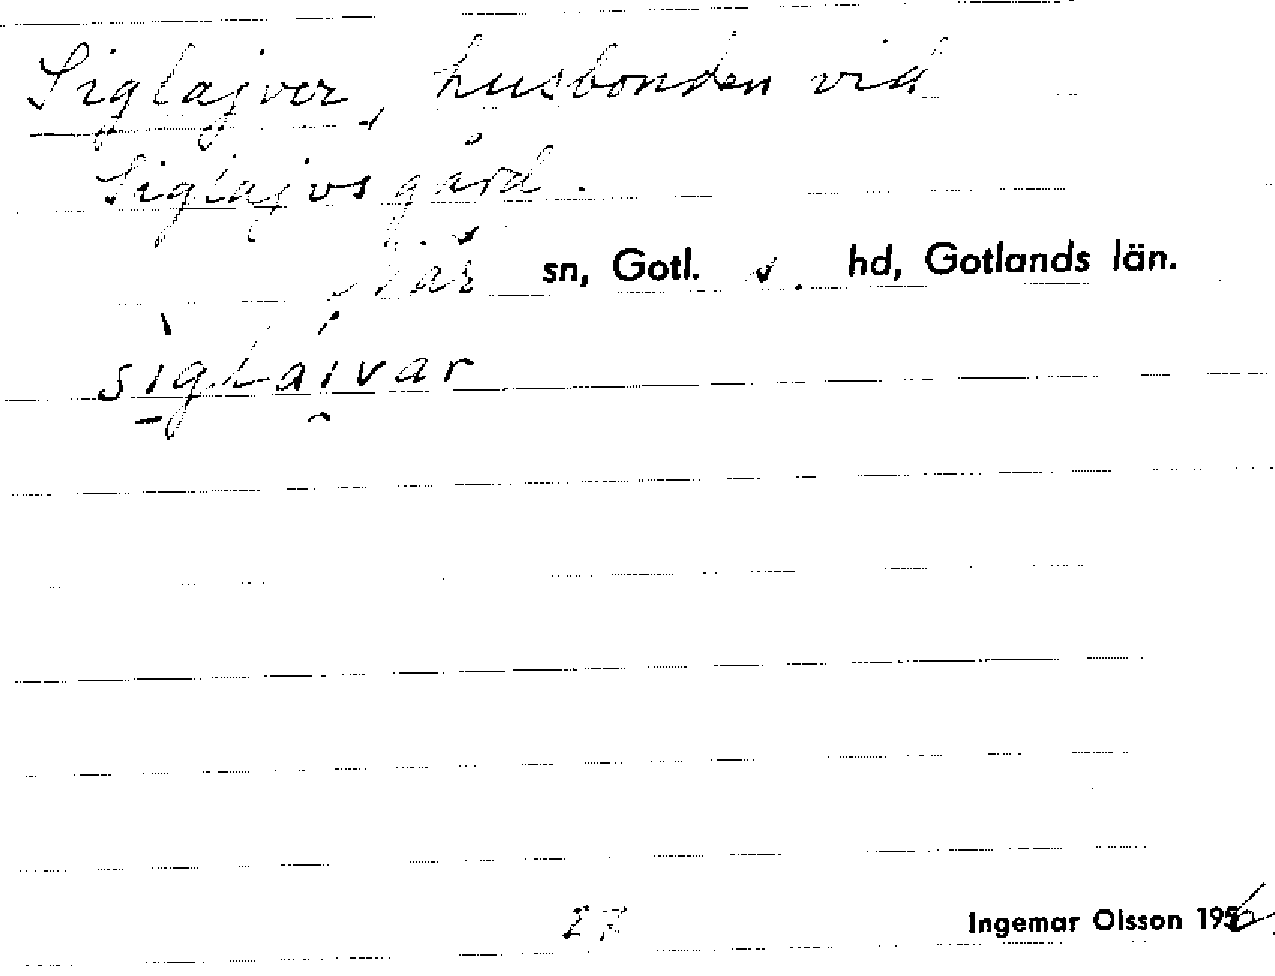 Siglajver, husbonden vid
Siglajvs gård.
När sn, Gotl. s. hd, Gotlands län.
siglaivar
27
Ingemar Olsson 1956